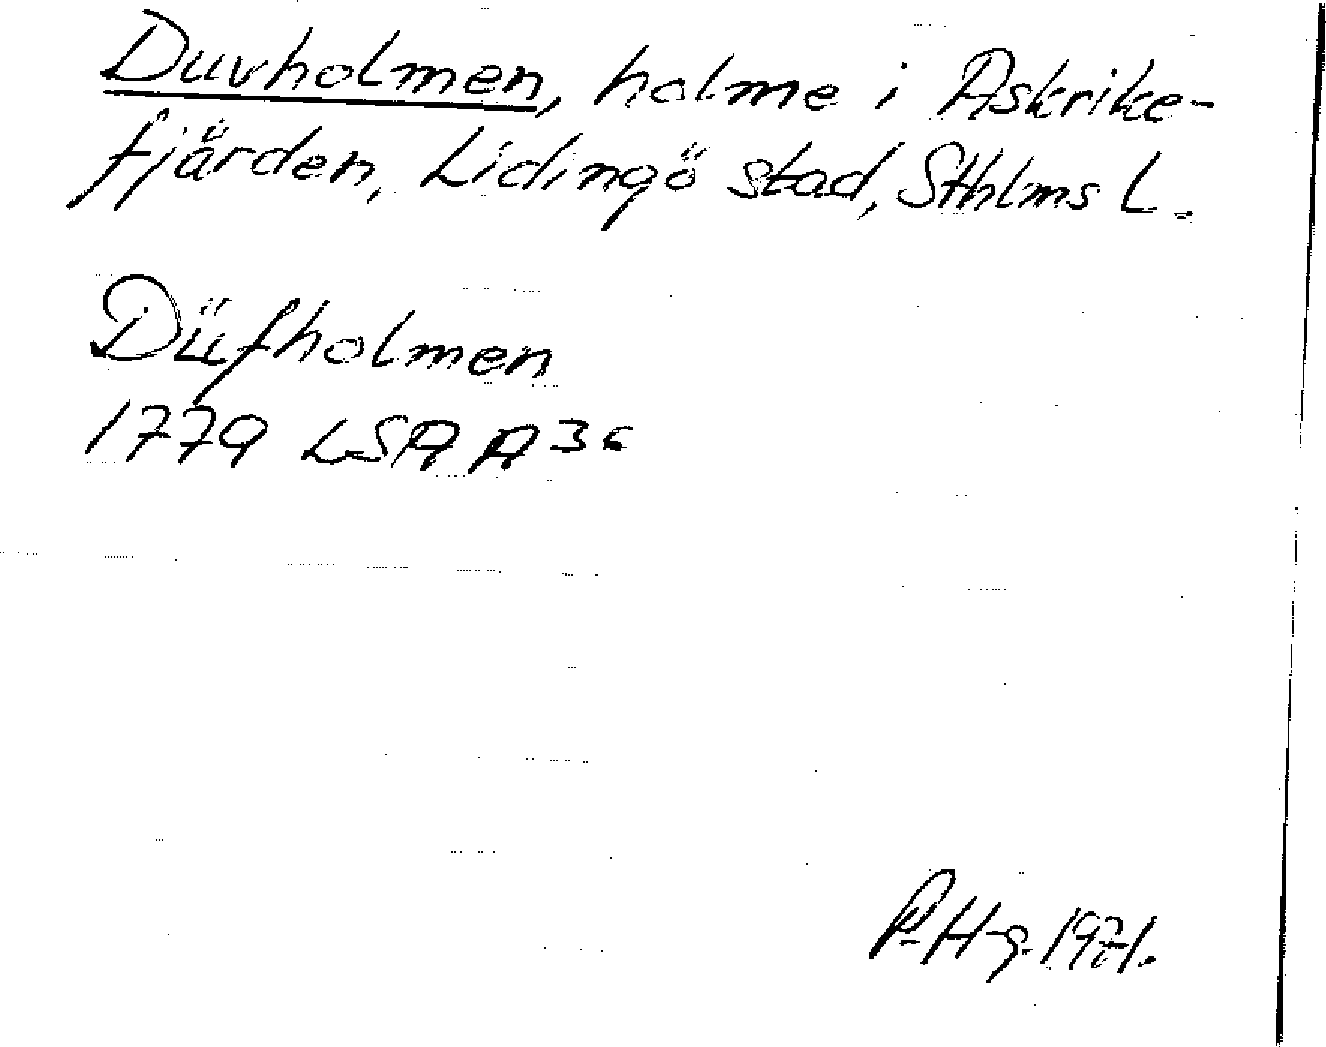 Duvholmen, holme i Askrike-
fjärden, Lidingö stad, Sthlms L.
Düfholmen
1779 LSA A 36
P. H-g. 1971.